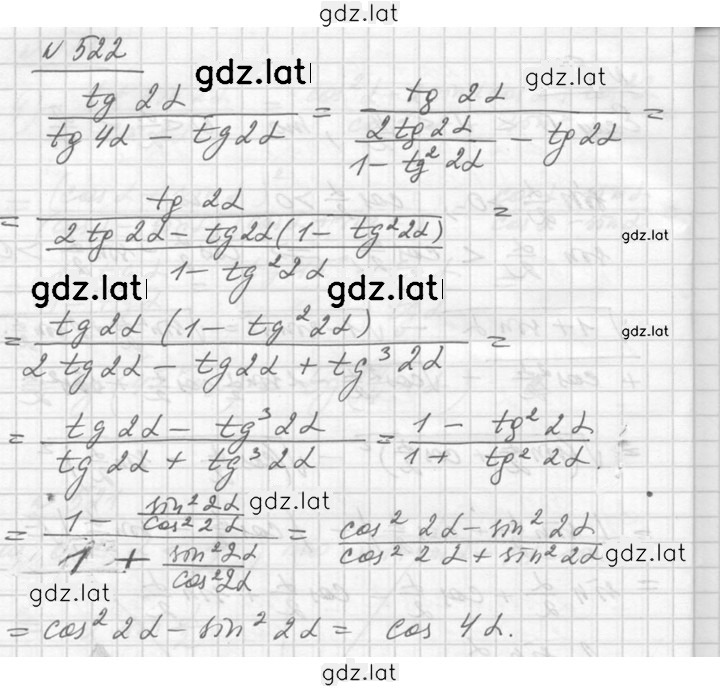 gdz.lat
№ 522
gdz.lat
gdz.lat
tg 2α / (tg 4α − tg 2α) = tg 2α / (2 tg 2α / (1 − tg² 2α) − tg 2α) =
= tg 2α / ((2 tg 2α − tg 2α (1 − tg² 2α)) / (1 − tg² 2α)) =
gdz.lat
gdz.lat
gdz.lat
= tg 2α (1 − tg² 2α) / (2 tg 2α − tg 2α + tg³ 2α) =
gdz.lat
= (tg 2α − tg³ 2α) / (tg 2α + tg³ 2α) = (1 − tg² 2α) / (1 + tg² 2α)
gdz.lat
= (1 − sin² 2α / cos² 2α) / (1 + sin² 2α / cos² 2α) = (cos² 2α − sin² 2α) / (cos² 2α + sin² 2α)
gdz.lat
gdz.lat
= cos² 2α − sin² 2α = cos 4α.
gdz.lat